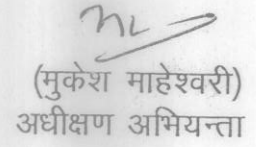 (मुकेश माहेश्वरी)
अधीक्षण अभियन्ता